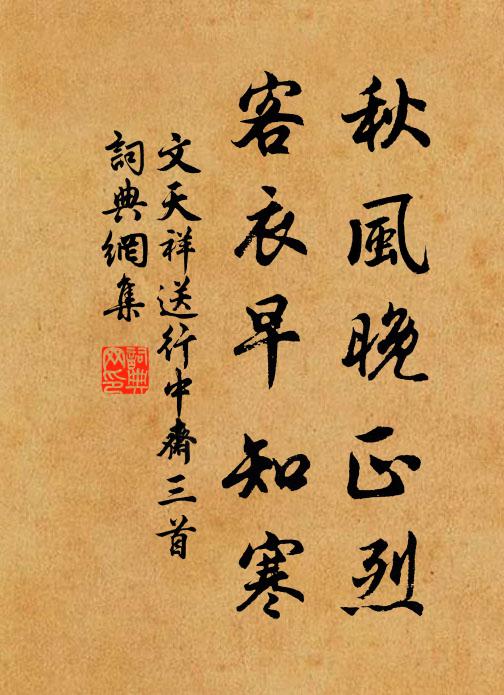 秋風晚正烈
客衣早知寒
文天祥送行中齋三首
詞典網集
詞典网印